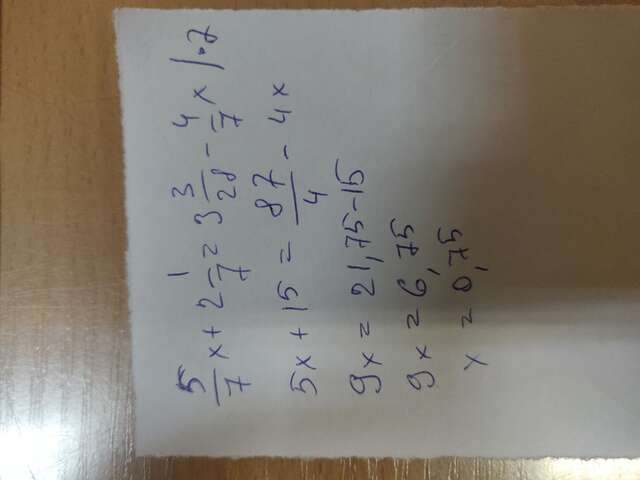 5/7 x + 2 1/7 = 3 3/28 - 4/7 x |·7
5x + 15 = 87/4 - 4x
9x = 21,75-15
9x = 6,75
x = 0,75